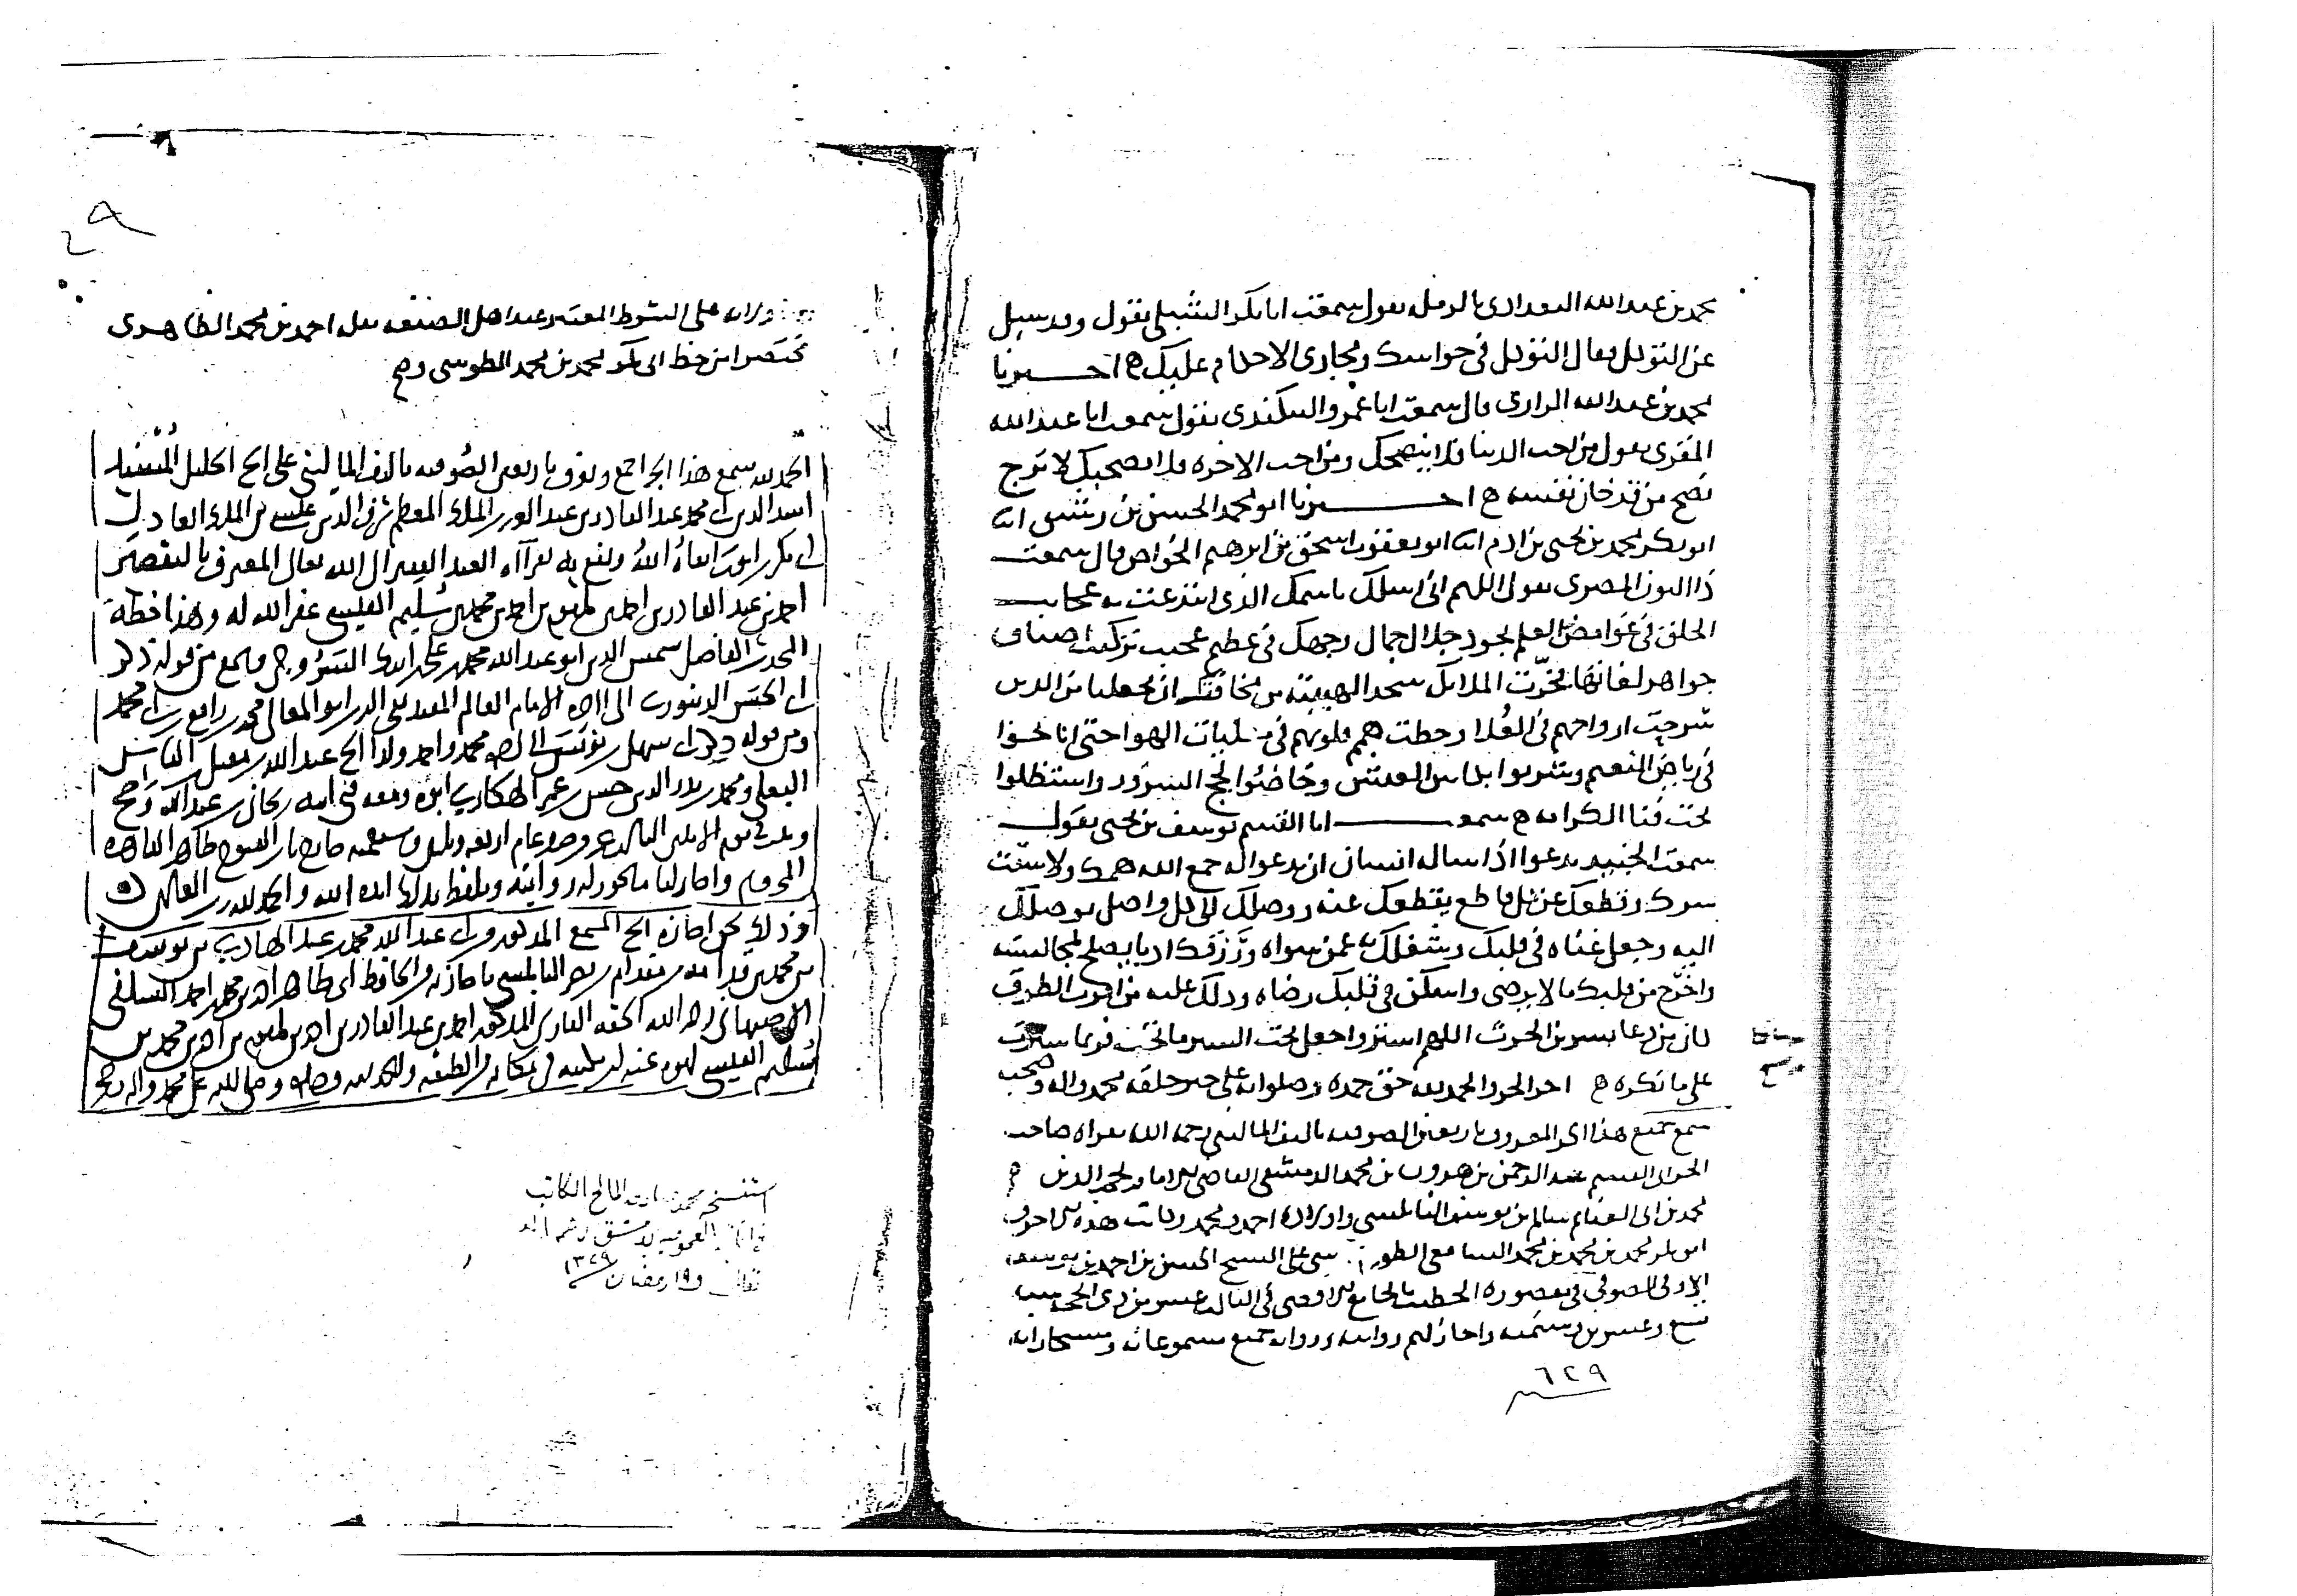 محمد بن عبد الله البغدادي بالرمله يقول سمعت ابا بكر الشبلي يقول وقد سيل
عن التوكل فقال التوكل في حواسك ومجاري الاحكام عليك ه اخبرنا
محمد بن عبد الله الرازي قال سمعت ابا عمرو البيكندي يقول سمعت ابا عبد الله
المقرى يقول من احب الدنيا فلا ينصحك ومن احب الاخره فلا يصحبك لا ترج
نصح من قد خان نفسه ه اخبرنا ابو محمد الحسن بن رشيق انا
ابو بكر محمد بن يحيى بن ادم انا ابو يعقوب اسحق بن ابرهيم الخواص قال سمعت
ذا النون المصرى يقول اللهم انى اسلك باسمك الذى ابتدعت به عجايب
الخلق في غوامض العلم بجود جلال جمال وجهك في عظيم عجيب تركيب اصناف
جواهر لغاتها فخرت الملايكه سجدا لهيبته من مخافتك ان تجعلنا من الذين
سرحت ارواحهم في العلا وحطت همم قلوبهم في غلبات الهوا حتى اناخوا
في رياض النعيم وشربوا بكاس العيش وخاضوا لجج السرور واستظلوا
تحت فنا الكرامه ه سمعت ابا القسم يوسف بن يحيى يقول
سمعت الجنيد يدعوا اذا ساله انسان ان يدعوا له جمع الله همك ولا شتت
سرك وقطعك عن كل قاطع يقطعك عنه ووصلك الى كل واصل يوصلك
اليه وجعل غناه في قلبك وشغلك به عمن سواه ورزقك ادبا يصلح لمجالسته
واخرج من قلبك ما لا يرضى واسكن في قلبك رضاه ودلك عليه من اقرب الطرق
كان من دعا بشر بن الحرث اللهم استر واجعل تحت الستر ما تحب فربما سترت
على ما تكره ه اخر الجزو الحمد لله حق حمده وصلواته على خير خلقه محمد واله وصحبه
سمع جميع هذا الجز المعروف باربعين الصوفيه تاليف الماليني رحمه الله بقراه صاحب
الجزو ابى القسم عبد الرحمن بن هرون بن محمد الدمشقى القاضى الامام نجم الدين
محمد بن ابى الغنايم سالم بن يوسف النابلسي واولاده احمد ومحمد
ابو بكر محمد بن محمد بن محمد الشافعي الطوسى على الشيخ الحسن بن احمد بن يوسف
الاوقى الصوفي في مقصوره الخطيب بالجامع الاقصى في الثالث عشر من ذى الحجه سنه
تسع وعشرين وستميه واجاز لهم روايته وروايه جميع مسموعاته ومستجازاته
٦٢٩
على الشرط المعتبر عند اهل الصنعه نقله احمد بن محمد الظاهرى
مختصرا من خط ابى بكر محمد بن محمد الطوسى وصح
الحمد لله سمع هذا الجزا جمع ويعرف باربعين الصوفيه تاليف الماليني على الشيخ الجليل المسند
اسد الدين ابى محمد عبد القادر بن عبد العزيز بن الملك المعظم شرف الدين عيسى بن الملك العادل
ابى بكر بن ايوب ابقاه الله ونفع به بقراه العبد الفقير الى الله تعالى المعترف بالتقصير
احمد بن عبد القادر بن احمد بن مكتوم بن احمد بن محمد بن سليم القيسى عفر الله له وهذا خطه
المحدث الفاضل شمس الدين ابو عبد الله محمد بن على بن ايبك السروجى وسمع من قوله ذكر
ابى الحسن الدينوري الى اخره الامام العالم المفيد تقى الدين ابو المعالى محمد بن رافع بن ابى محمد
ومن قوله ذكر ابى سهل بن يونس الى اخره محمد واحمد ولدا الشيخ عبد الله
البعلى ومحمد بن بدر الدين حسن بن عمر الهكارى ابوه ومعه فتى ابيه ريحان بن عبد الله وصح
وثبت في يوم الاثنين عام اربعه وثلثين وسبعميه ظاهر القاهره
المحروسه واجاز لنا ما يجوز له روايته وتلفظ بذلك ايده الله والحمد لله رب العالمين
وذلك بحق اجازه الشيخ المسمع المذكور من ابى عبد الله محمد بن عبد الهادى بن يوسف
بن محمد بن قدامه بن مقدام بن نصر النابلسي باجازته من الحافظ ابى طاهر احمد بن محمد بن احمد السلفى
الاصبهانى رحمه الله الحقه القارى المذكور احمد بن عبد القادر بن احمد بن مكتوم بن احمد بن محمد بن
سليم القيسى والحمد لله وحده وصلى الله على محمد واله وصحبه
استنسخه محمد صادق المالح الكاتب
العموميه بدمشق الشام
١٩ رمضان ١٣٢٩